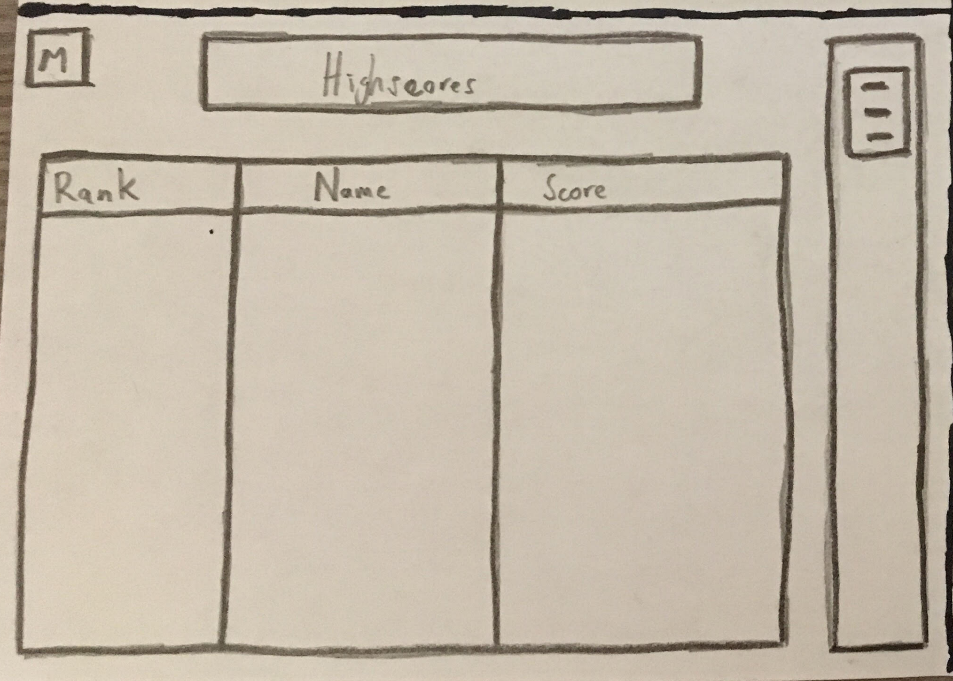 M
Highscores
Rank Name Score